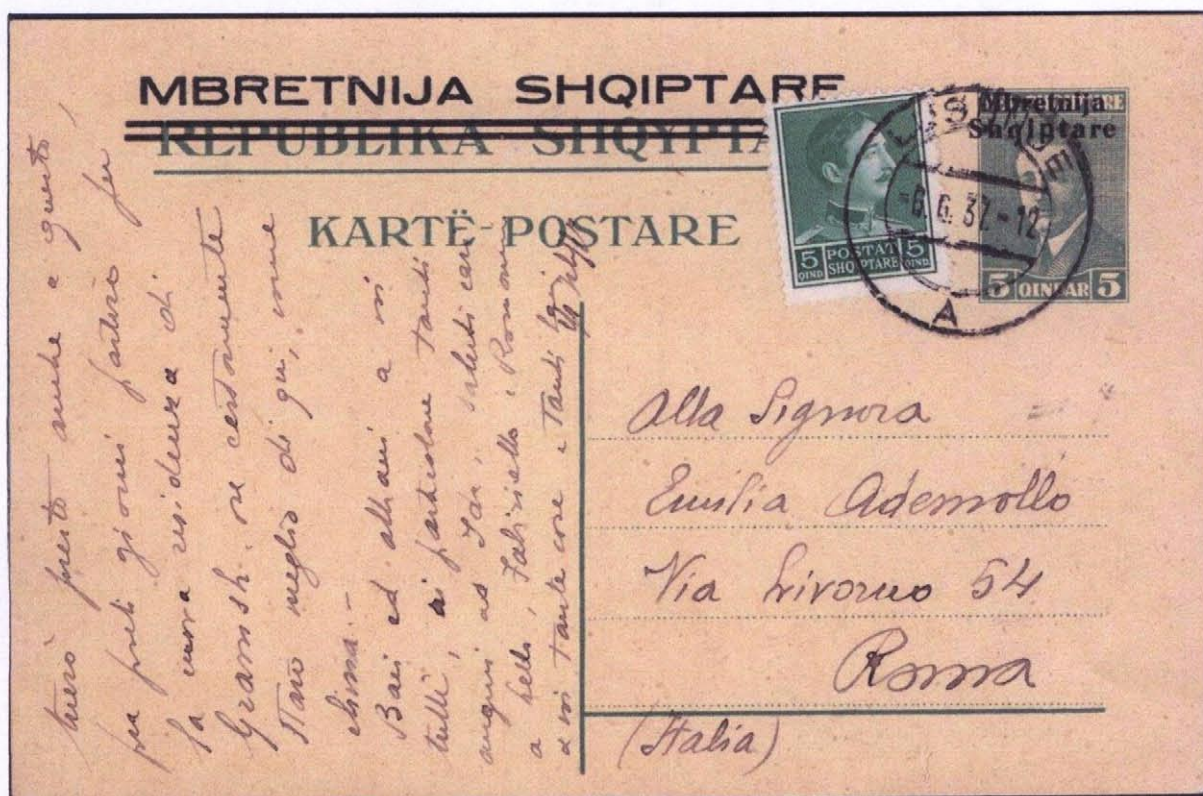 MBRETNIJA SHQIPTARE
REPUBLIKA SHQYPTA
KARTË-POSTARE
5 POSTAT 5
QIND. SHQIPTARE QIND.
Mbretnija
Shqiptare
5 QINDAR 5
-6.6.37.-12
A
Alla Signora
Emilia Ademollo
Via Livorno 54
Roma
(Italia)
presto anche a questo,
fra pochi giorni partirò per
la nuova residenza di
Gramsh. ove certamente
starò meglio di qui, come
clima.-
Baci ed abbracci a voi
tutti, in particolare tanti
auguri ad Ida, saluti cari
a
a voi tante cose e tanti